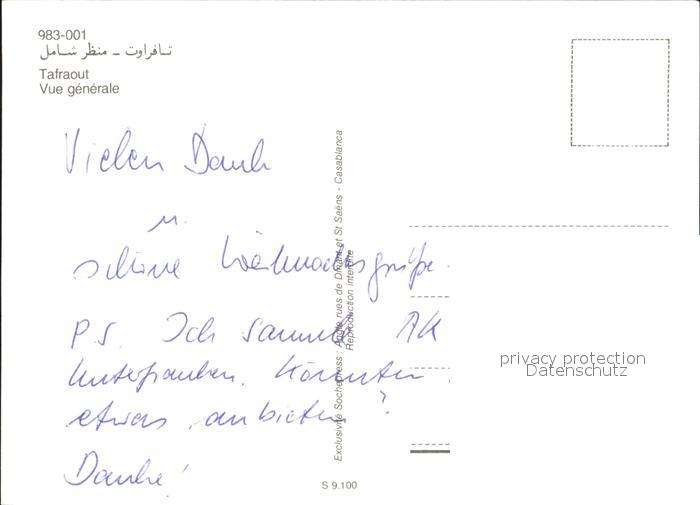 983-001
تافراوت – منظر شامل
Tafraout
Vue générale
Vielen Dank
u.
schöne Weihnachtsgrüße.
P.S. Ich sammle AK
Unterfranken. Könnten
etwas anbieten?
Danke!
Exclusivité Sochepress : Angle rues de Dinant et St Saëns - Casablanca
Reproduction interdite
S 9.100
privacy protection
Datenschutz